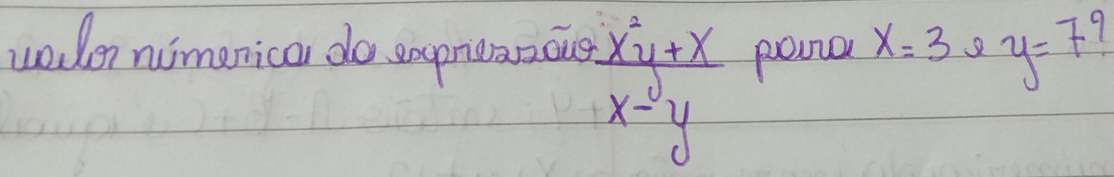 valor númerica da expriessão x²y+x / x-y para x=3 e y=7?